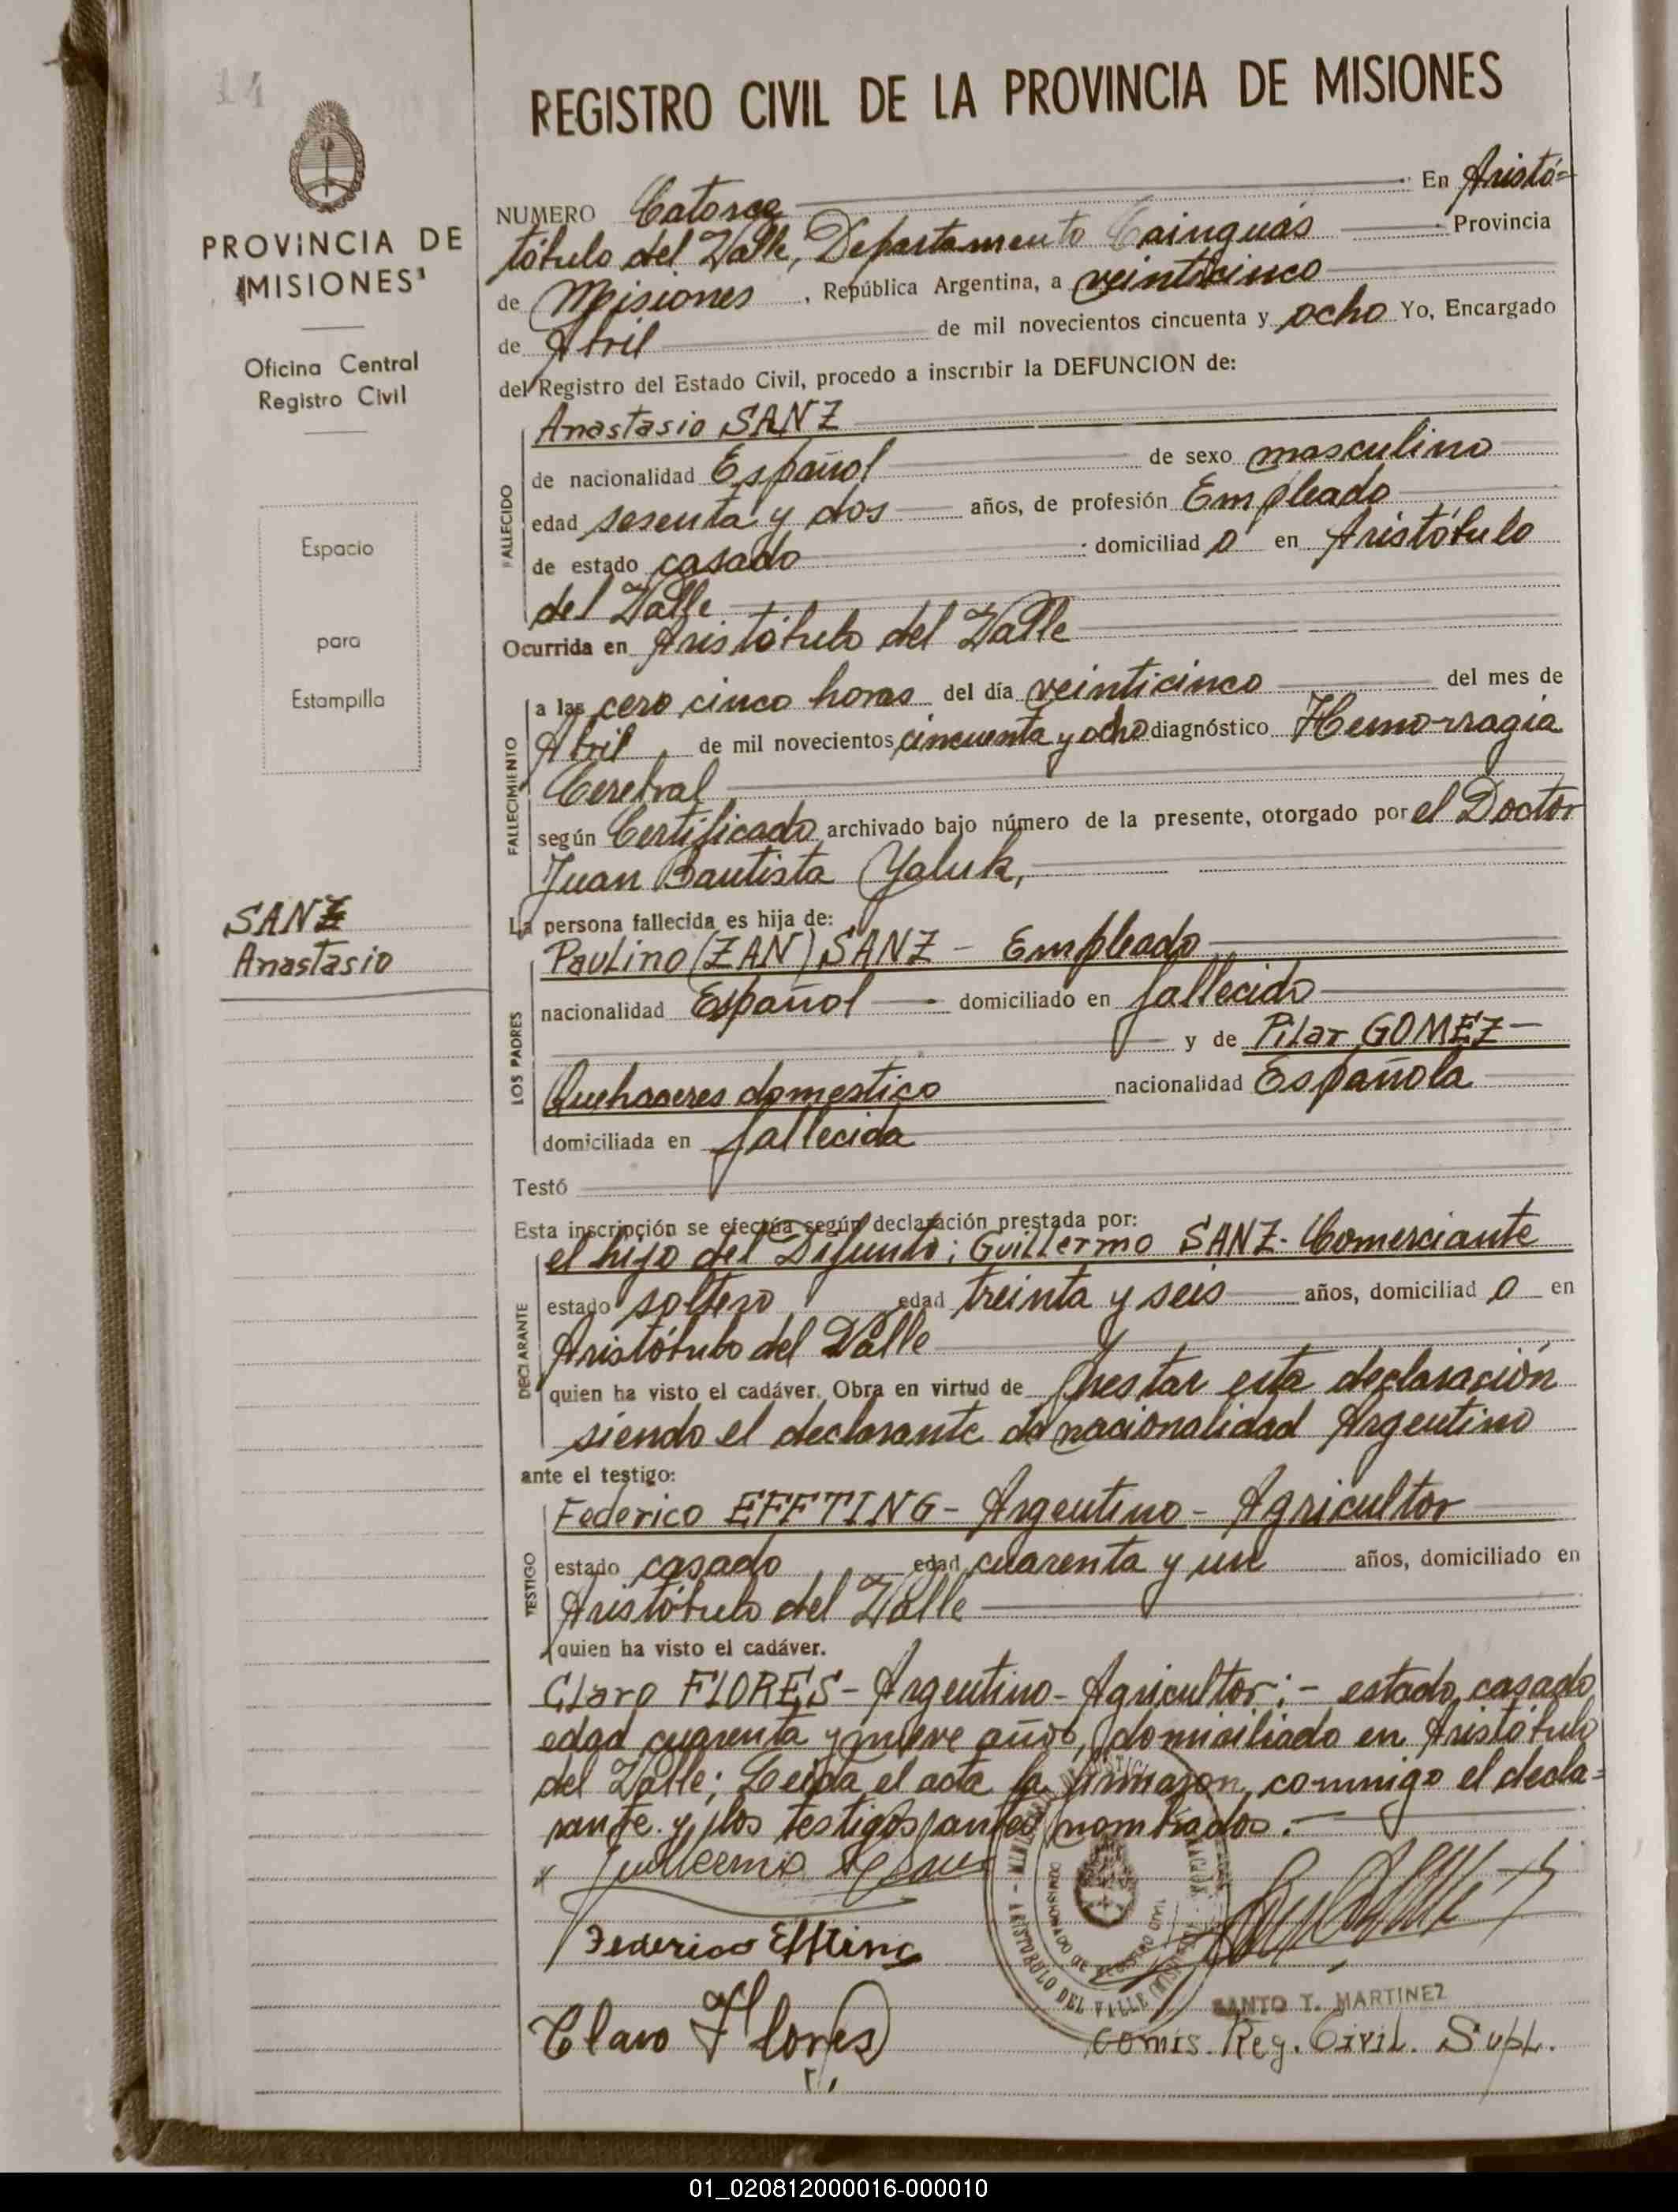 14
PROVINCIA DE
"MISIONES"
Oficina Central
Registro Civil
Espacio
para
Estampilla
SANZ
Anastasio
REGISTRO CIVIL DE LA PROVINCIA DE MISIONES
NUMERO Catorce En Aristó=
tóbulo del Valle, Departamento Cainguás Provincia
de Misiones, República Argentina, a veinticinco
de Abril de mil novecientos cincuenta y ocho Yo, Encargado
del Registro del Estado Civil, procedo a inscribir la DEFUNCION de:
FALLECIDO
Anastasio SANZ
de nacionalidad Español de sexo masculino
edad sesenta y dos años, de profesión Empleado
de estado casado domiciliad o en Aristóbulo
del Valle
Ocurrida en Aristóbulo del Valle
FALLECIMIENTO
a las cero cinco horas del día veinticinco del mes de
Abril, de mil novecientos cincuenta y ocho diagnóstico Hemorragia
Cerebral
según Certificado archivado bajo número de la presente, otorgado por el Doctor
Juan Bautista Yaluk,
La persona fallecida es hija de:
LOS PADRES
Paulino (ZAN) SANZ - Empleado
nacionalidad Español domiciliado en fallecido
y de Pilar GOMEZ
Quehaceres domestico nacionalidad Española
domiciliada en fallecida
Testó
Esta inscripción se efectúa según declaración prestada por:
DECLARANTE
el hijo del Difunto; Guillermo SANZ - Comerciante
estado soltero edad treinta y seis años, domiciliad o en
Aristóbulo del Valle
quien ha visto el cadáver. Obra en virtud de prestar esta declaración
siendo el declarante de nacionalidad Argentino
ante el testigo:
TESTIGO
Federico EFFTING - Argentino - Agricultor
estado casado edad cuarenta y un años, domiciliado en
Aristóbulo del Valle
quien ha visto el cadáver.
Claro FLORES - Argentino - Agricultor; - estado, casado
edad cuarenta y nueve años, domiciliado en Aristóbulo
del Valle; Leída el acta la firmaron, conmigo el decla=
rante y los testigos antes nombrados.
Guillermo
Federico Effting
Claro Flores
ARISTOBULO DEL VALLE
SANTO T. MARTINEZ
Comis. Reg. Civil. Supl.
01_020812000016-000010